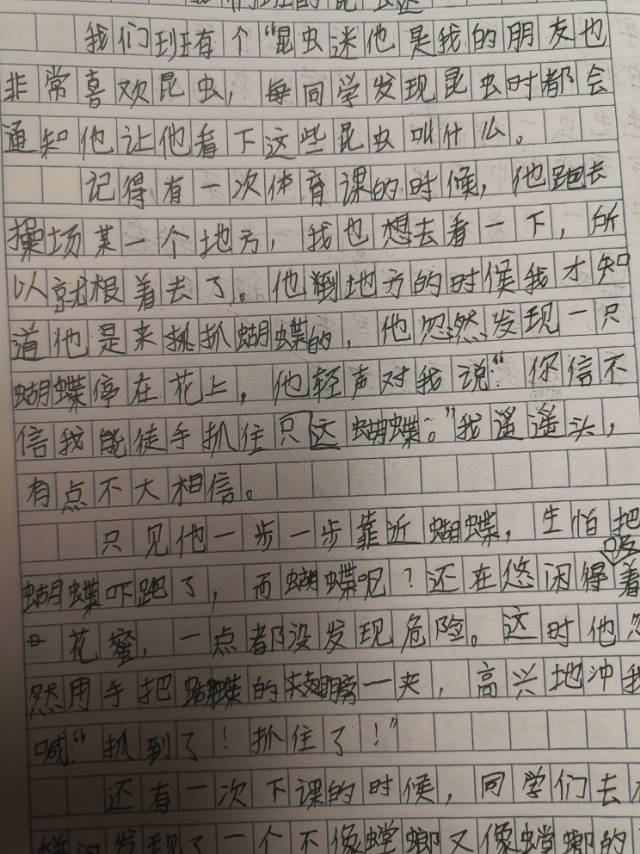 我们班的昆虫迷
我们班有个“昆虫迷他是我的朋友也
非常喜欢昆虫，每同学发现昆虫时都会
通知他让他看下这些昆虫叫什么。
记得有一次体育课的时候，他跑去
操场某一个地方，我也想去看一下，所
以就跟着去了。他到地方的时候我才知
道他是来抓蝴蝶的，他忽然发现一只
蝴蝶停在花上，他轻声对我说：“你信不
信我能徒手抓住只这蝴蝶。”我遥遥头，
有点不大相信。
只见他一步一步靠近蝴蝶，生怕把
蝴蝶吓跑了，而蝴蝶呢？还在悠闲得吸着
花蜜，一点都没发现危险。这时他忽
然用手把蝴蝶的翅膀一夹，高兴地冲我
喊：“抓到了！抓住了！”
还有一次下课的时候，同学们去
发现了一个不像螳螂又像螳螂的